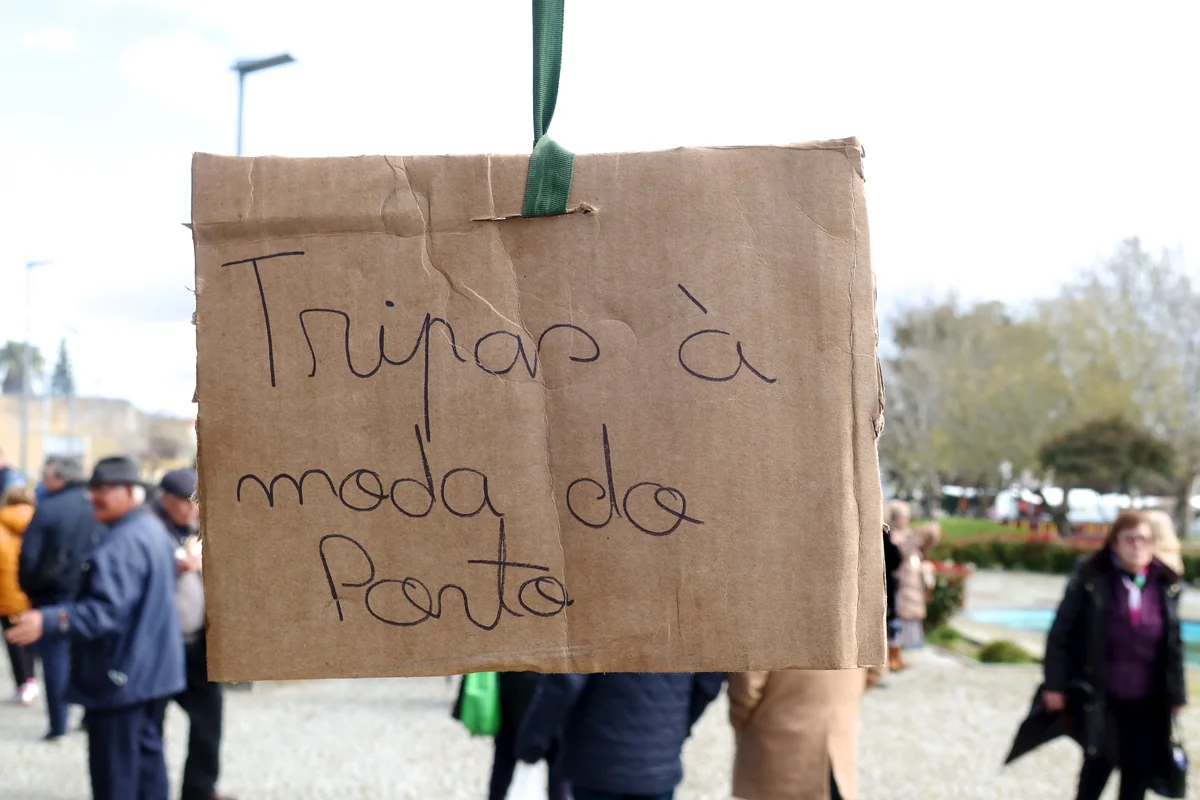 Tripas à
moda do
Porto